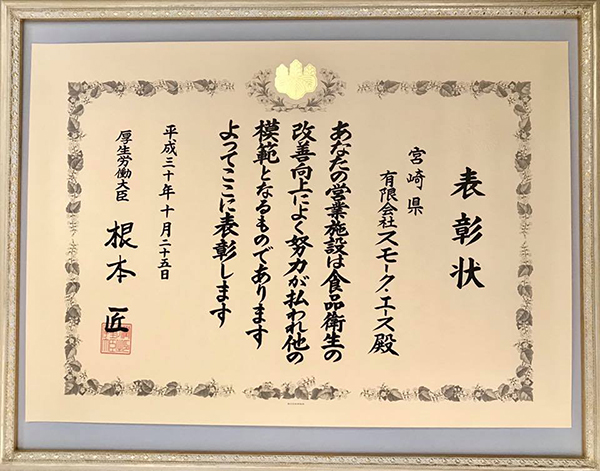 表彰状
宮崎県
有限会社スモーク・エース殿
あなたの営業施設は食品衛生の
改善向上によく努力が払われ他の
模範となるものであります
よってここに表彰します
平成三十年十月二十五日
厚生労働大臣 根本匠